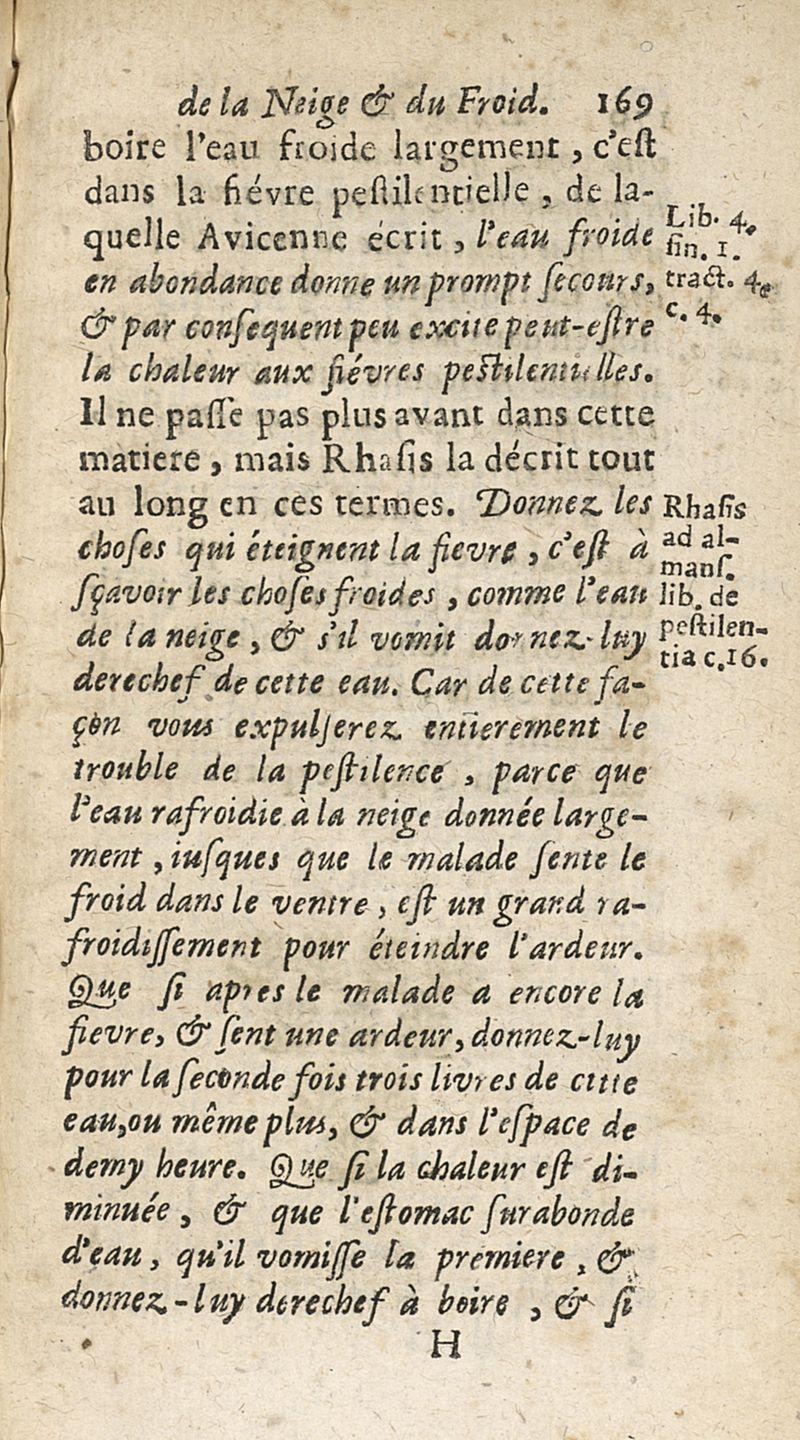 de la Neige & du Froid. 169
boire l'eau froide largement, c'eſt
dans la fiévre peſtilentielle, de la-
quelle Avicenne écrit, l'eau froide
en abondance donne un prompt ſecours,
& par conſequent peu excite peut-eſtre
la chaleur aux fiévres peſtilentielles.
Il ne paſſe pas plus avant dans cette
matiere, mais Rhaſis la décrit tout
au long en ces termes. Donnez les
choſes qui éteignent la fievre, c'eſt à
ſçavoir les choſes froides, comme l'eau
de la neige, & s'il vomit donnez-luy
derechef de cette eau. Car de cette fa-
çon vous expulſerez entierement le
trouble de la peſtilence, parce que
l'eau rafroidie à la neige donnée large-
ment, iuſques que le malade ſente le
froid dans le ventre, eſt un grand ra-
froidiſſement pour éteindre l'ardeur.
Que ſi apres le malade a encore la
fievre, & ſent une ardeur, donnez-luy
pour la ſeconde fois trois livres de cette
eau, ou même plus, & dans l'eſpace de
demy heure. Que ſi la chaleur eſt di-
minuée, & que l'eſtomac ſurabonde
d'eau, qu'il vomiſſe la premiere, &
donnez-luy derechef à boire, & ſi
H
Lib. 4.
fin. 1.
tract. 4.
c. 4.
Rhaſis
ad al-
manſ.
lib. de
peſtilen-
tia c. 16.